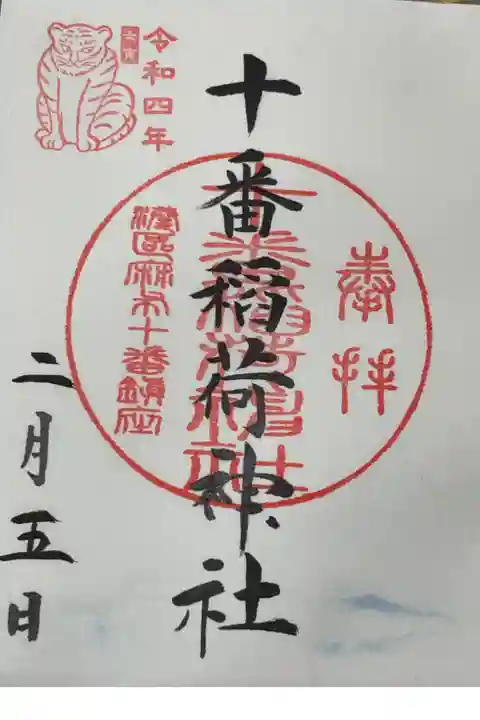 奉拝
十番稲荷神社
港区麻布十番鎮座
令和四年
二月五日